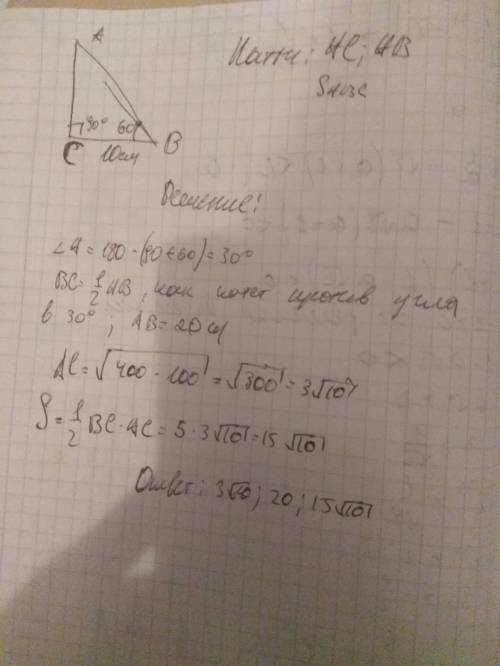 Найти: AC; AB
S ABC
A
90° 60°
C 10см B
Решение:
∠A = 180 - (90+60) = 30°
BC = 1/2 AB, как катет против угла
в 30°; AB = 20 см
AC = √400 - 100 = √300 = 3√10
S = 1/2 BC · AC = 5 · 3√10 = 15√10
Ответ: 3√10; 20; 15√10